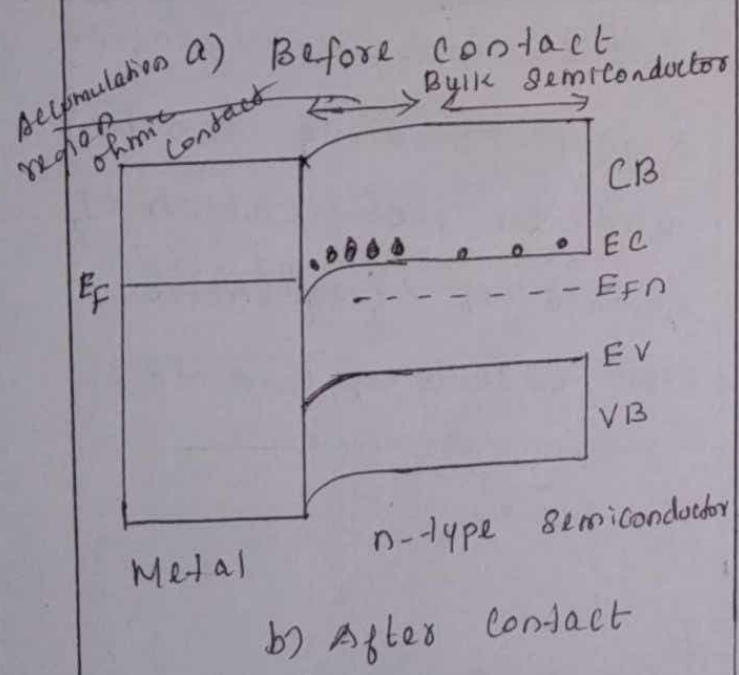 a) Before contact
Accumulation
region
ohmic
contact
Bulk semiconductor
CB
EC
EF
EFn
EV
VB
n-type semiconductor
Metal
b) After contact